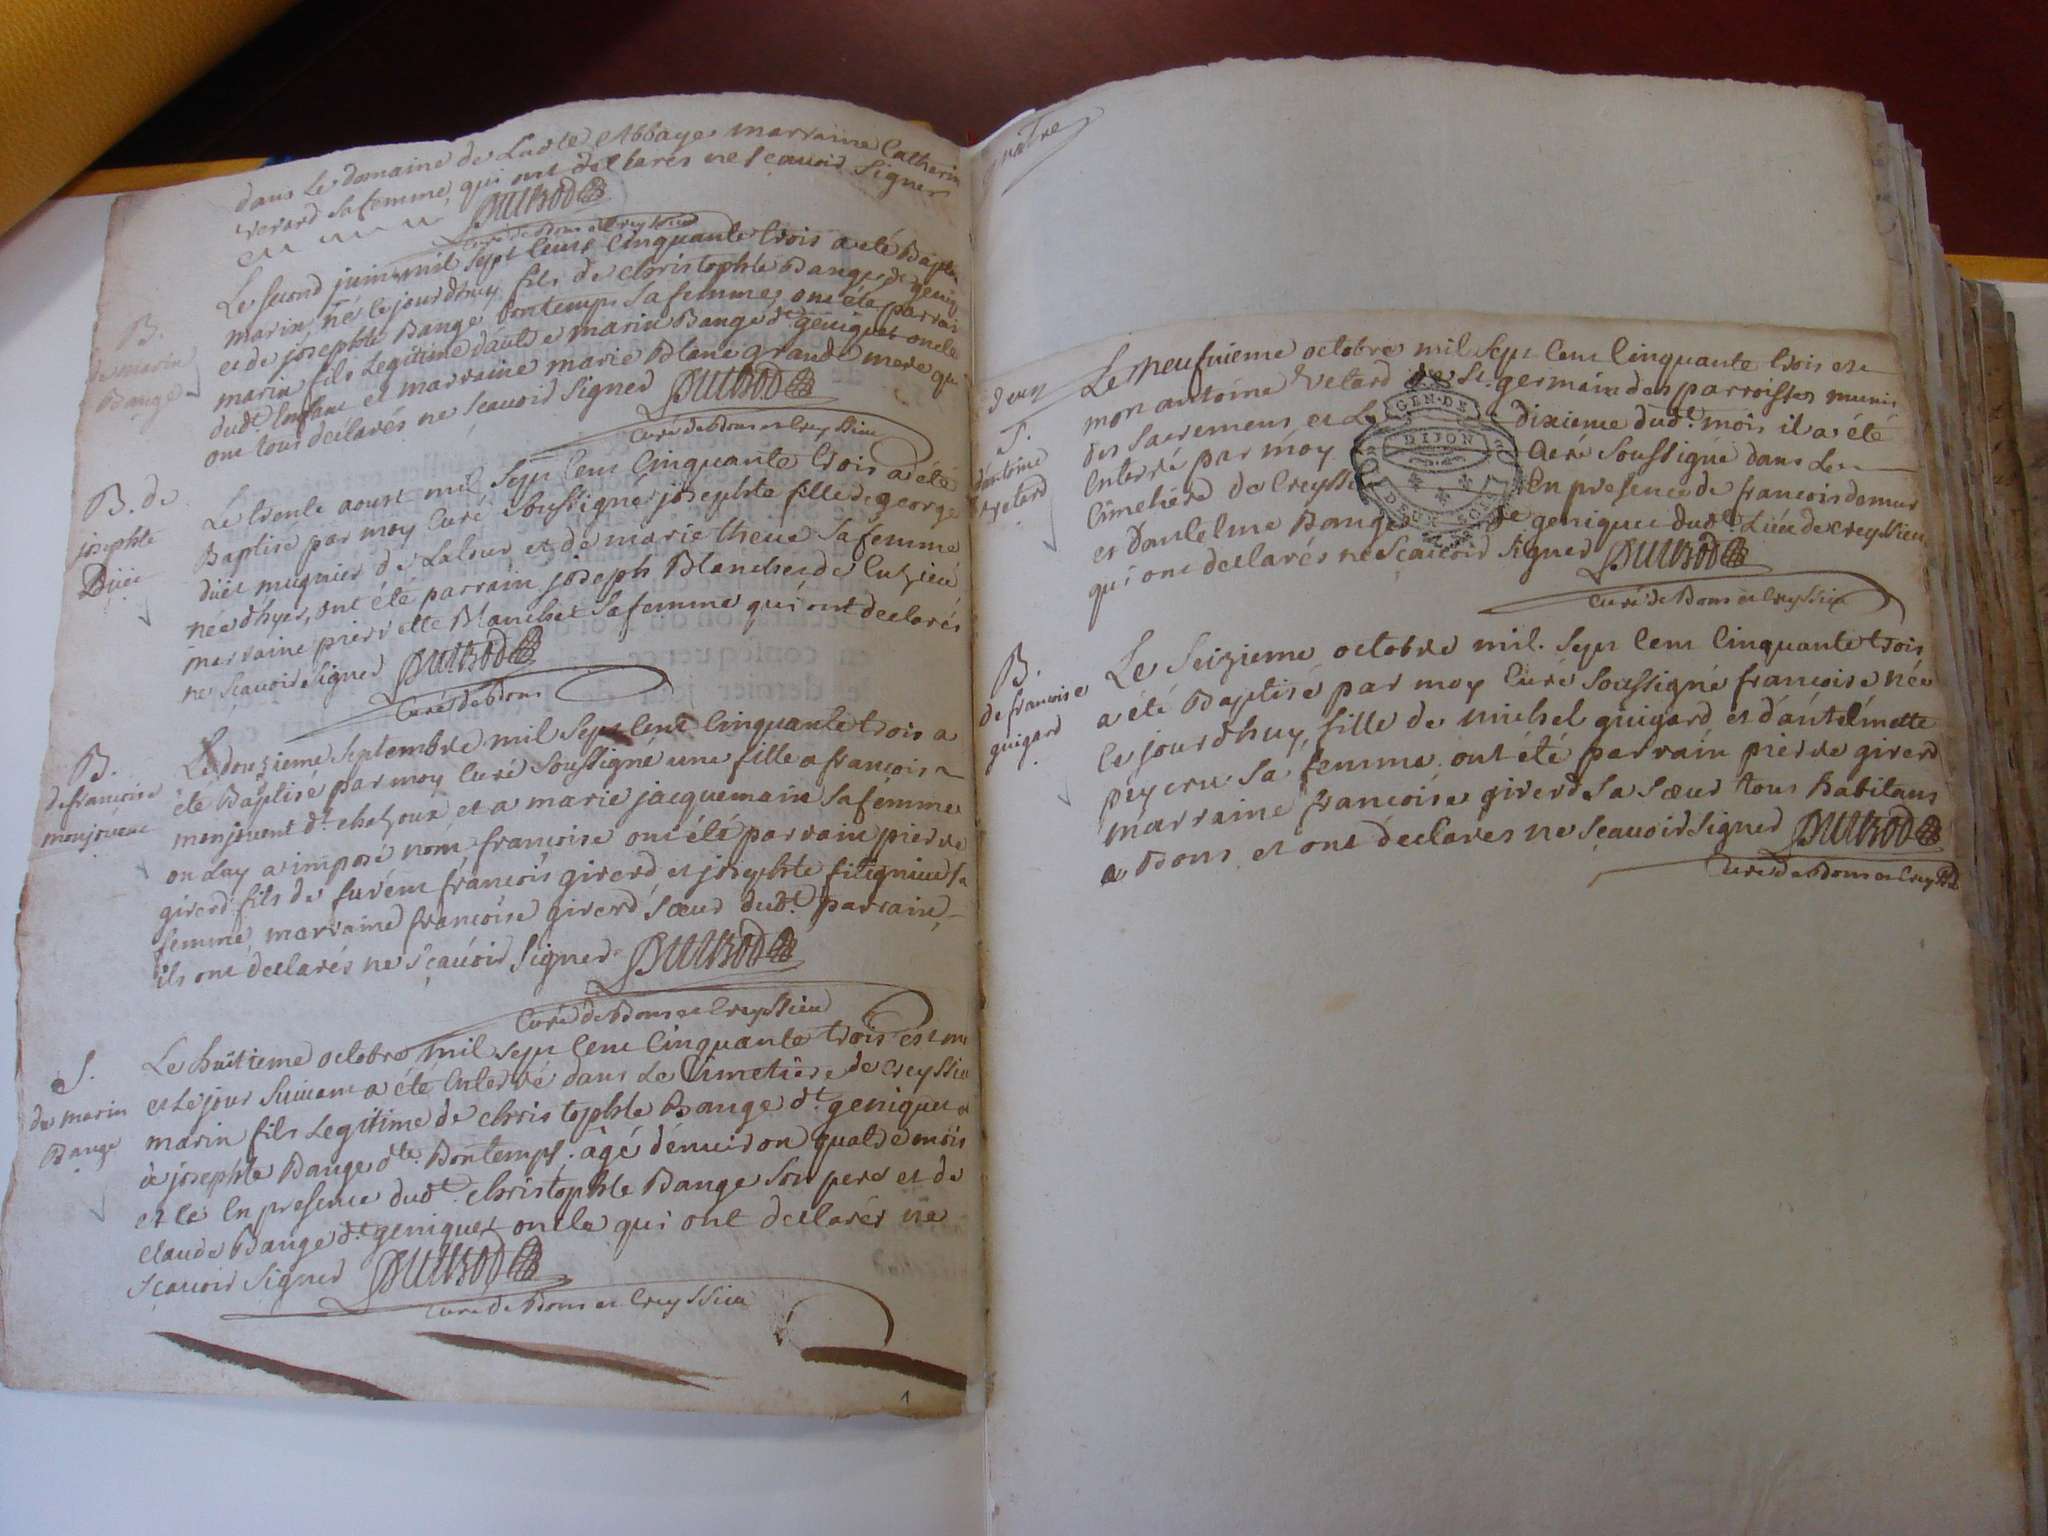 dans Le domaine de Ladte Abbaye marraine Catherin
verard sa femme, qui ont declarés ne sçavoir signer
DUTROD
curé de Bons et Creyssieu
B.
de marin
Bange
Le second juin mil sept cens cinquante trois a été Bapti
marin, né le jourdhuy fils de christophle Bange dt geniq
et de josephte Bange bontemps sa femme, ont été parrai
marin fils Legitime dautre marin Bange dt geniquet oncle
dudt Enfant et marraine marie Blanc grande mere qui
ont tous declarés ne sçavoir signer DUTROD
curé de Bons et Creyssieu
B. de
josephte
Duet
Le trente aoust mil sept cent cinquante trois a été
Baptisé par moy curé soussigné josephte fille de george
duet mugnier de Latour et de marie theve sa femme
née dhyer, ont été parrain joseph Blanchet de
marraine pierrette Blanchet sa femme qui ont declarés
ne sçavoir signer DUTROD
curé de Bons
B.
de francoise
monjouent
Le douzieme septembre mil sept cent cinquante trois a
été Baptisé par moy curé soussigné une fille a francois
monjouent dt chatoux et a marie jacquemain sa femme
on luy a imposé nom francoise ont été parrain pierre
girerd fils de francois girerd et josephte sa
femme, marraine francoise girerd sœur dudt parrain,
ils ont declarés ne sçavoir signer DUTROD
curé de Bons et Creyssieu
S.
de marin
Bange
Le huitieme octobre mil sept cent cinquante trois est mo
et le jour suivant a été enterré dans Le Cimetiere de creyssieu
marin fils Legitime de christophle Bange dt geniquet et
de josephte Bange dte Bontemps. âgé dénuiron quatre mois
et ce En presence dudt christophle Bange son pere et de
claude Bange dt geniquet oncle qui ont declarés ne
sçavoir signer DUTROD
curé de Bons et Creyssieu
1
quatre
deux
S.
d'antoine
vetard
Le neufuieme octobre mil sept cent cinquante trois est
mort antoine vetard de St. germain des parroisses munis
des sacremens et Le dixieme dudt. mois il a été
Enterré par moy curé soussigné dans Le
cimetiére de Creyss En presence de francois
et d'antelme Bange geniquet dudt. Lieu de creyssieu
qui ont declarés ne sçavoir signer DUTROD
curé de Bons et Creyssieu
GEN. DE
DIJON
DEUX SOLS
B.
de francoise
guigard
Le seizieme octobre mil. sept cent cinquante trois
a été Baptisé par moy curé soussigné francoise née
le jourdhuy, fille de michel guigard et d'antelmette
peycru sa femme. ont été parrain pierre girerd
marraine francoise girerd sa sœur tous habitans
a Bons et ont declarés ne sçavoir signer DUTROD
curé de Bons et Creyss